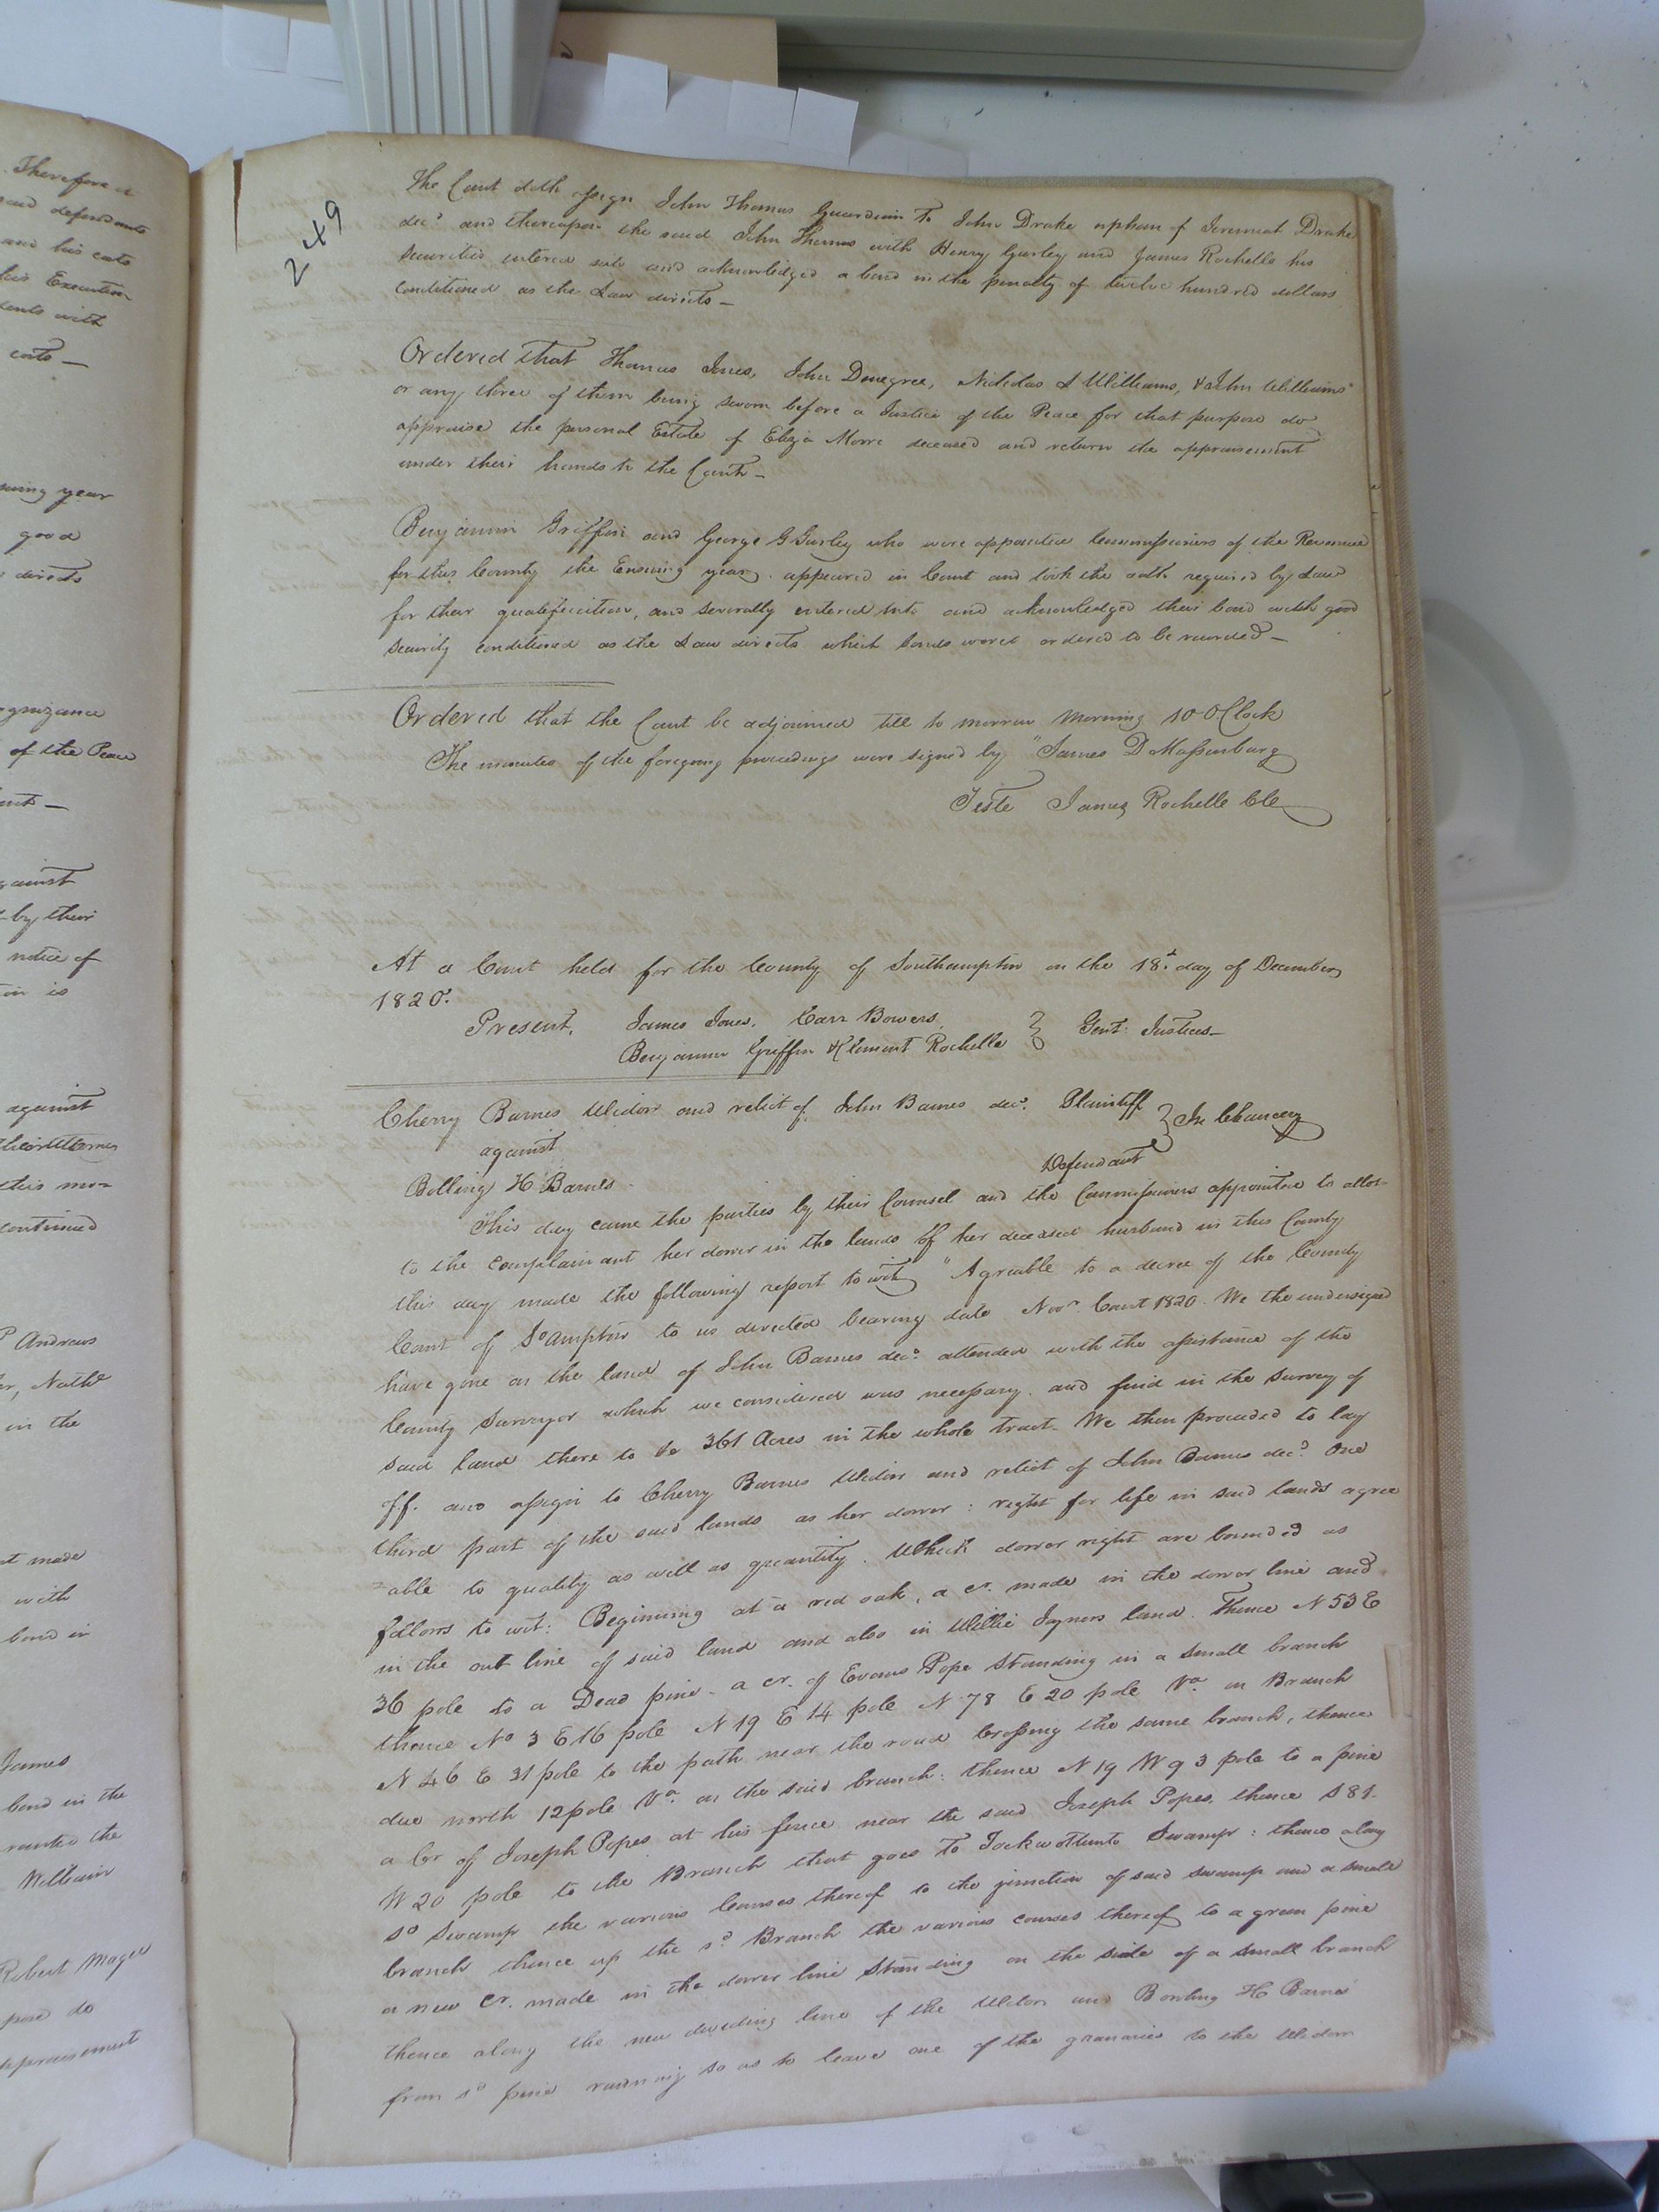 Therefore it
said defendants
and his costs
his Execution
costs —
good
directs
of the Peace
against
by their
notice of
against
this mo=
continued
P Andrews
in the
made
with
bond in
James
bond in the
the
William
Robert Magee
do
249
The Court doth assign John Thomas Guardian to John Drake orphan of Jeremiah Drake
decd and thereupon the said John Thomas with Henry Gurley and James Rochelle his
securities entered into and acknowledged a bond in the penalty of twelve hundred dollars
conditioned as the Law directs —
Ordered that Thomas Jones, John Denegree, Nicholas L Williams, & John Williams
or any three of them being sworn before a Justice of the Peace for that purpose do
appraise the personal Estate of Eliza Moore deceased and return the appraisement
under their hands to the Court —
Benjamin Griffin and George G Gurley who were appointed Commissioners of the Revenue
for this County the Ensuing year, appeared in Court and took the oath required by Law
for their qualification, and severally entered into and acknowledged their bond with good
security conditioned as the Law directs which bonds were ordered to be recorded —
Ordered that the Court be adjourned till to morrow morning 10 OClock
The minutes of the foregoing proceedings were signed by "James D Massenburg
Teste James Rochelle Cle
At a Court held for the County of Southampton on the 18th day of December
1820.
Present, James Jones, Carr Bowers,
Benjamin Griffin & Clement Rochelle } Gent: Justices —
Cherry Barnes Widow and relict of John Barnes decd. Plaintiff } In Chancery
against
Bolling H Barnes Defendant
This day came the parties by their Counsel and the Commissioners appointed to allot
to the complainant her dower in the lands of her deceased husband in this County
this day made the following report to wit, "Agreable to a decree of the County
Court of So.ampton to us directed bearing date Novr. Court 1820. We the undersigned
have gone on the land of John Barnes decd. attended with the assistance of the
County Surveyor which we considered was necessary. and find in the survey of
said land there to be 361 Acres in the whole tract. We then proceeded to lay
off. and assign to Cherry Barnes Widow and relict of John Barnes decd. One
third part of the said lands as her dower: right for life in said lands agree
=able to quality as well as quantity. Which dower right are bounded as
follows to wit: Beginning at a red oak, a cr. made in the dower line and
in the out line of said land and also in Willie Joyners land. Thence N 53 E
36 pole to a Dead pine - a cr. of Evans Pope Standing in a small branch
thence No 3 E 16 pole N 19 E 14 pole N 78 E 20 pole Va. on Branch
N 46 E 31 pole to the path near the road crossing the same branch, thence
due north 12 pole Va. on the said branch: thence N 19 W 93 pole to a pine
a Cr of Joseph Popes at his fence near the said Joseph Popes, thence S 81.
W 20 pole to the Branch that goes to Swamp: thence along
sd Swamp the various Courses thereof to the junction of said swamp and a small
branch thence up the sd. Branch the various courses thereof to a green pine
a new cr. made in the dower line standing on the side of a small branch
thence along the new dividing line of the Widow and Bowling H Barnes
from sd pine running so as to leave one of the granaries to the Widow